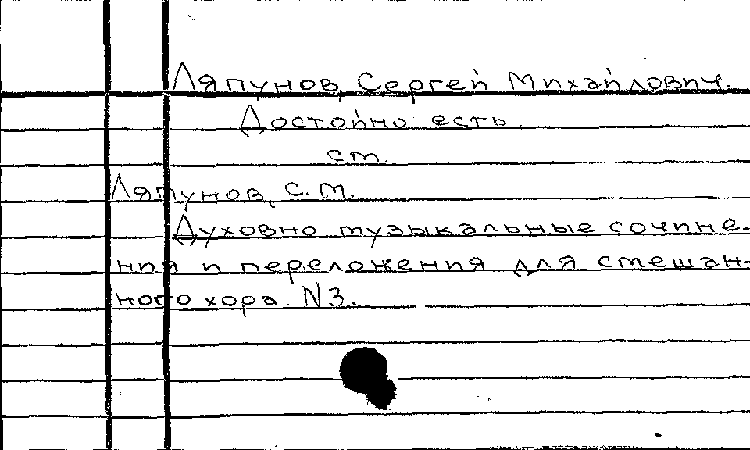 Ляпунов, Сергей Михайлович.
Достойно есть
см.
Ляпунов, С.М.
Духовно музыкальные сочине-
ния и переложения для смешан-
ного хора. N3.